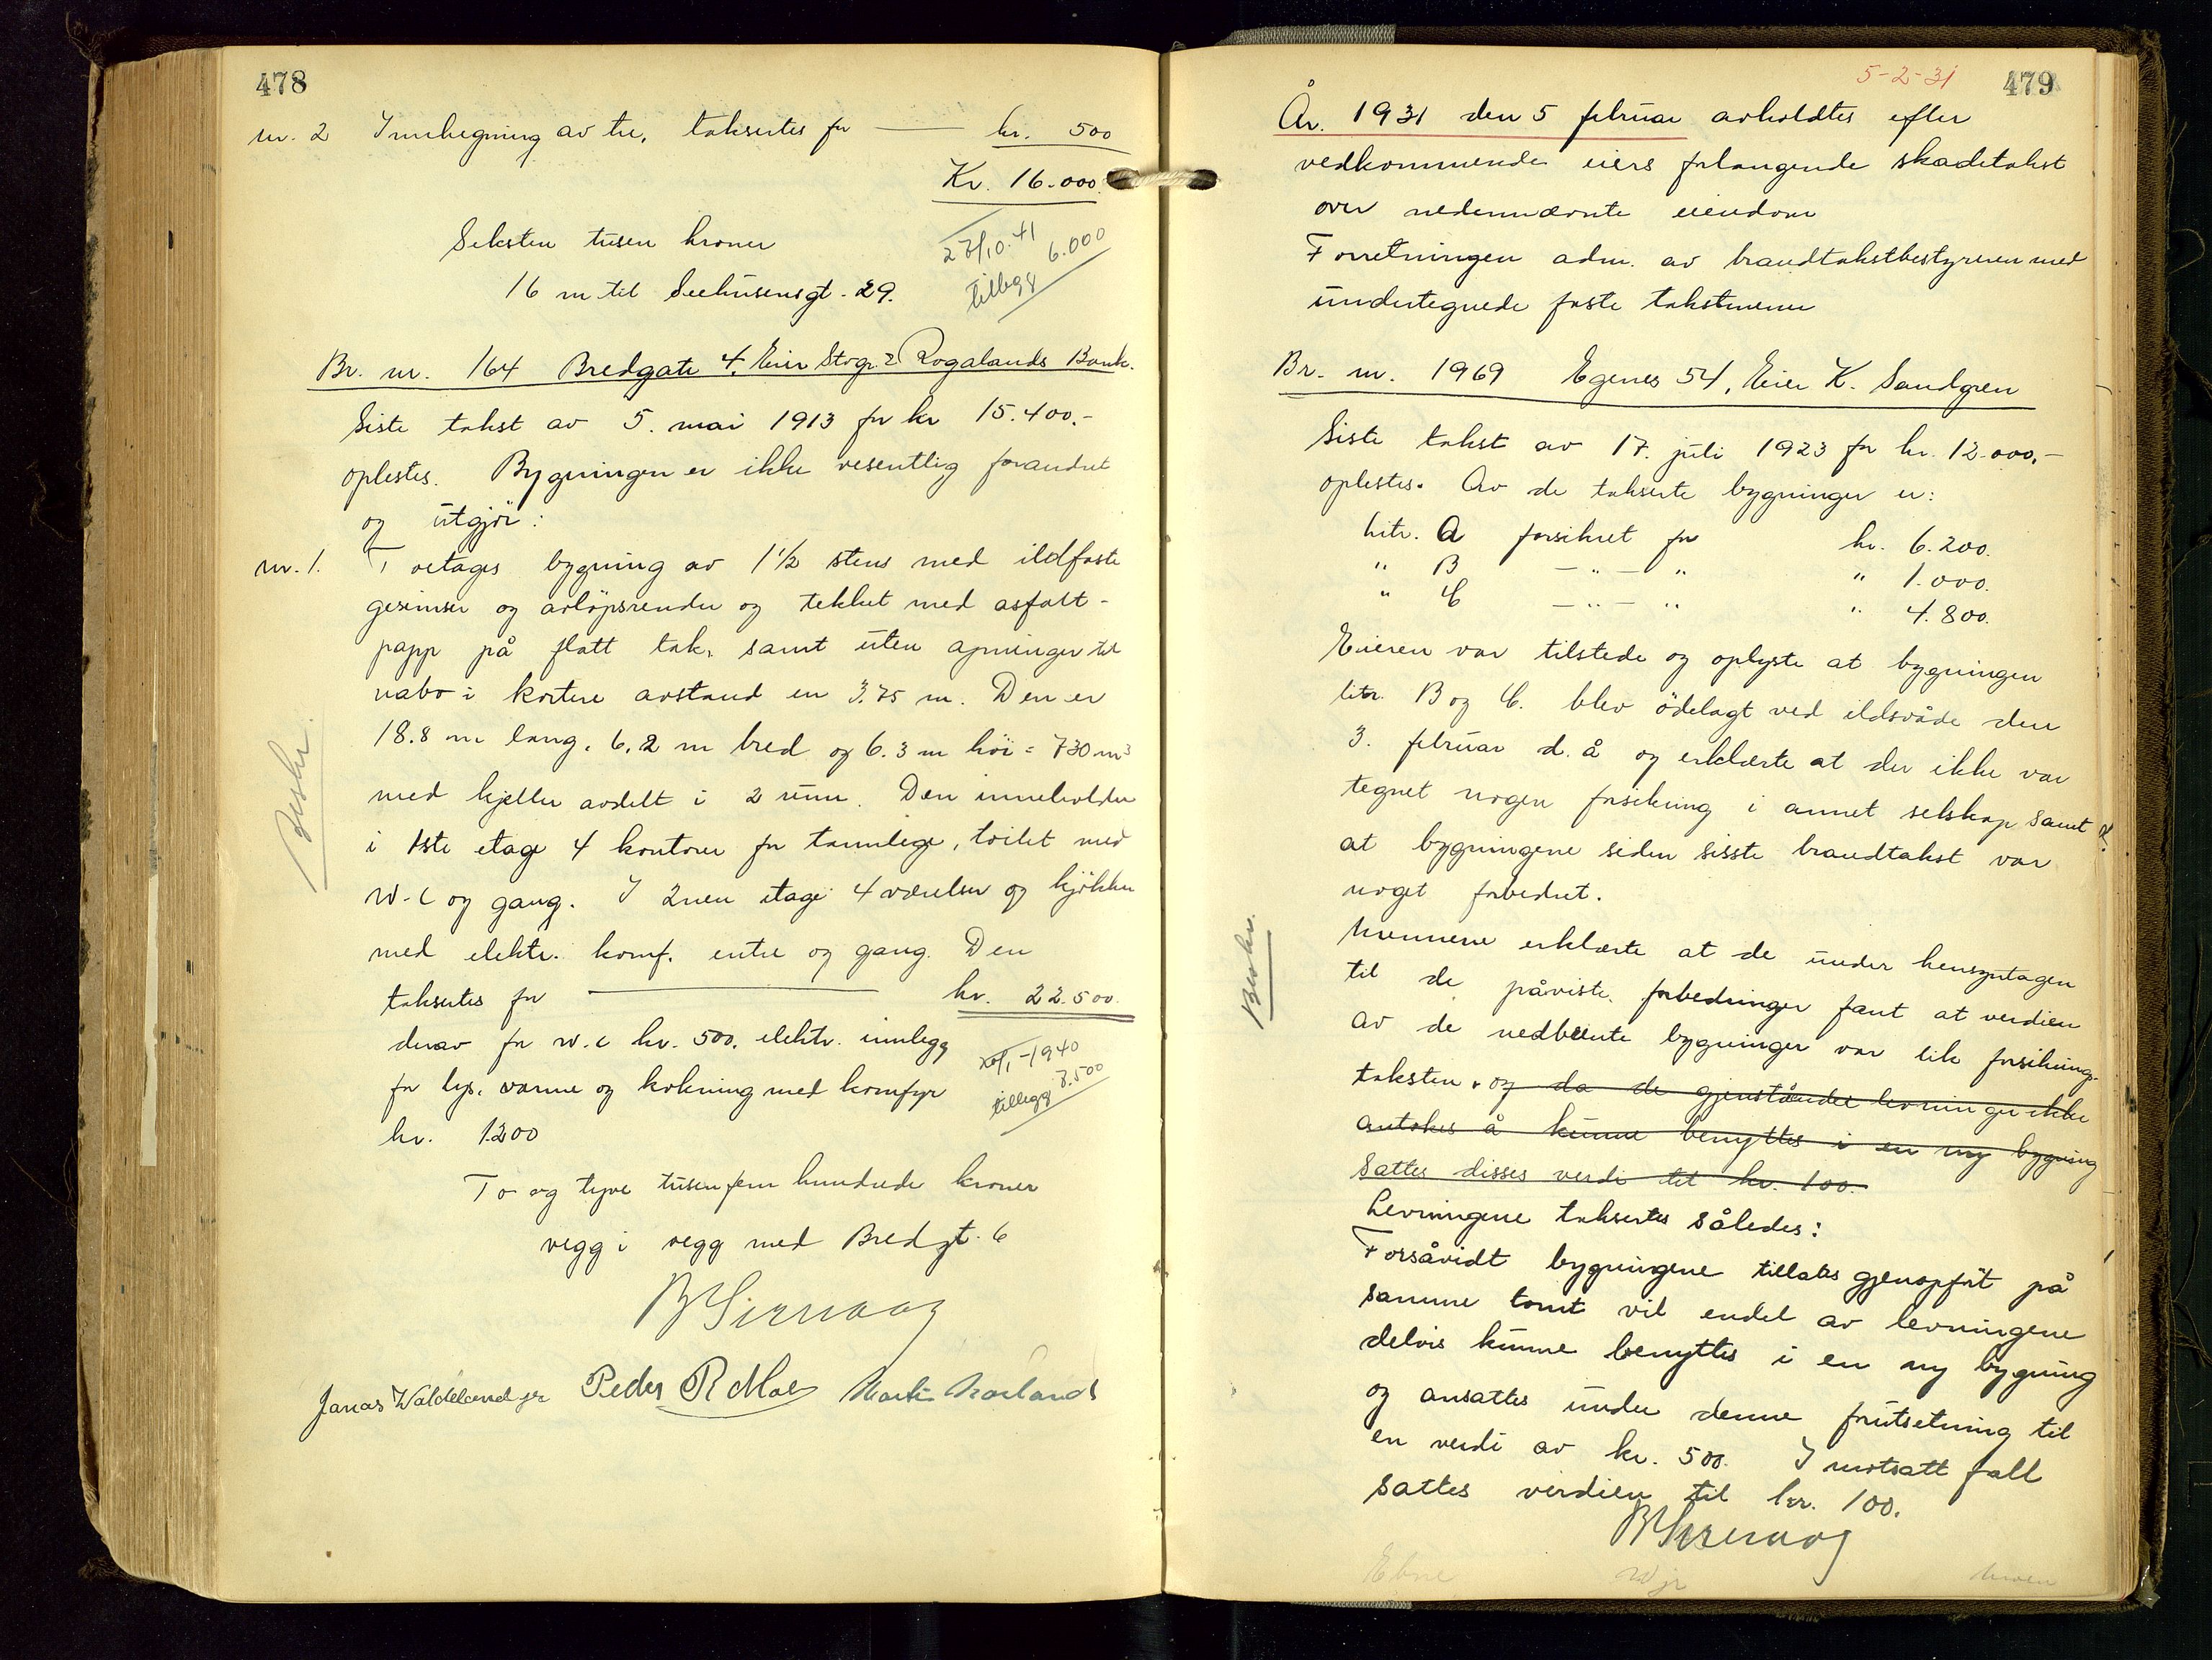 478
nr. 2 Innhegning av tre, takseres for — kr. 500
Kr. 16.000.
Seksten tusen kroner
16 m til Seehusensgt. 29.
27/10.41
tillegg 6.000
Br. nr. 164 Bredgate 4. Eier Stvgr. & Rogalands Bank.
Siste takst av 5. mai 1913 for kr 15.400.-
oplestes. Bygningen er ikke vesentlig forandret
og utgjör:
nr. 1. Toetages bygning av 1 1/2 stens med ildfaste
gesimser og avlöpsrender og tekket med asfalt-
papp på flatt tak, samt uten åpninger til
nabo i kortere avstand en 3.75 m. Den er
18.8 m lang, 6.2 m bred og 6.3 m höi = 730 m³
med kjeller avdelt i 2 rum. Den inneholder
i 1ste etage 4 kontorer for tannlege, toilet med
W.C og gang. I 2nen etage 4 værelser og kjökken
med elektr. komf. entre og gang. Den
takseres for — kr. 22.500.
derav for w.c kr. 500. elektr. innlegg
for lys, varme og kokning med komfyr
kr. 1200
-1940
tillegg 7.500
To og tyve tusen fem hundrede kroner
vegg i vegg med Bredgt. 6
Beskr.
B Sirnaag
Jonas Waldeland jr Peder R Moe
5-2-31
479
År. 1931 den 5 februar avholdtes efter
vedkommende eiers forlangende skadetakst
over nedennævnte eiendom
Forretningen adm. av brandtakstbestyreren med
undertegnede faste takstmenn
Br. nr. 1969 Egenes 54, Eier K. Sandgren
Siste takst av 17. juli 1923 for kr. 12.000,-
oplestes. Av de takserte bygninger er:
Litr. A forsikret for kr. 6.200.
" B — " — " " 1.000.
" C — " — " " 4.800.
Eieren var tilstede og oplyste at bygningen
litr. B og C. blev ödelagt ved ildsvåde den
3. februar d. å og erklærte at der ikke var
tegnet nogen forsikring i annet selskap samt
at bygningene siden sisste brandtakst var
noget forbedret.
Mennene erklærte at de under hensyntagen
til de påviste forbedringer fant at verdien
av de nedbrente bygninger var lik forsikrings-
taksten. og da de gjenstående levninger ikke
antakes å kunne benyttes i en ny bygning
sattes disses verdi til kr. 100.
Levningene taksertes således:
Forsåvidt bygningene tillates gjenopfört på
samme tomt vil endel av levningene
delvis kunne benyttes i en ny bygning
og ansattes under denne forutsetning til
en verdi av kr. 500. I motsatt fall
sattes verdien til kr. 100.
Beskr.
B Sirnaag